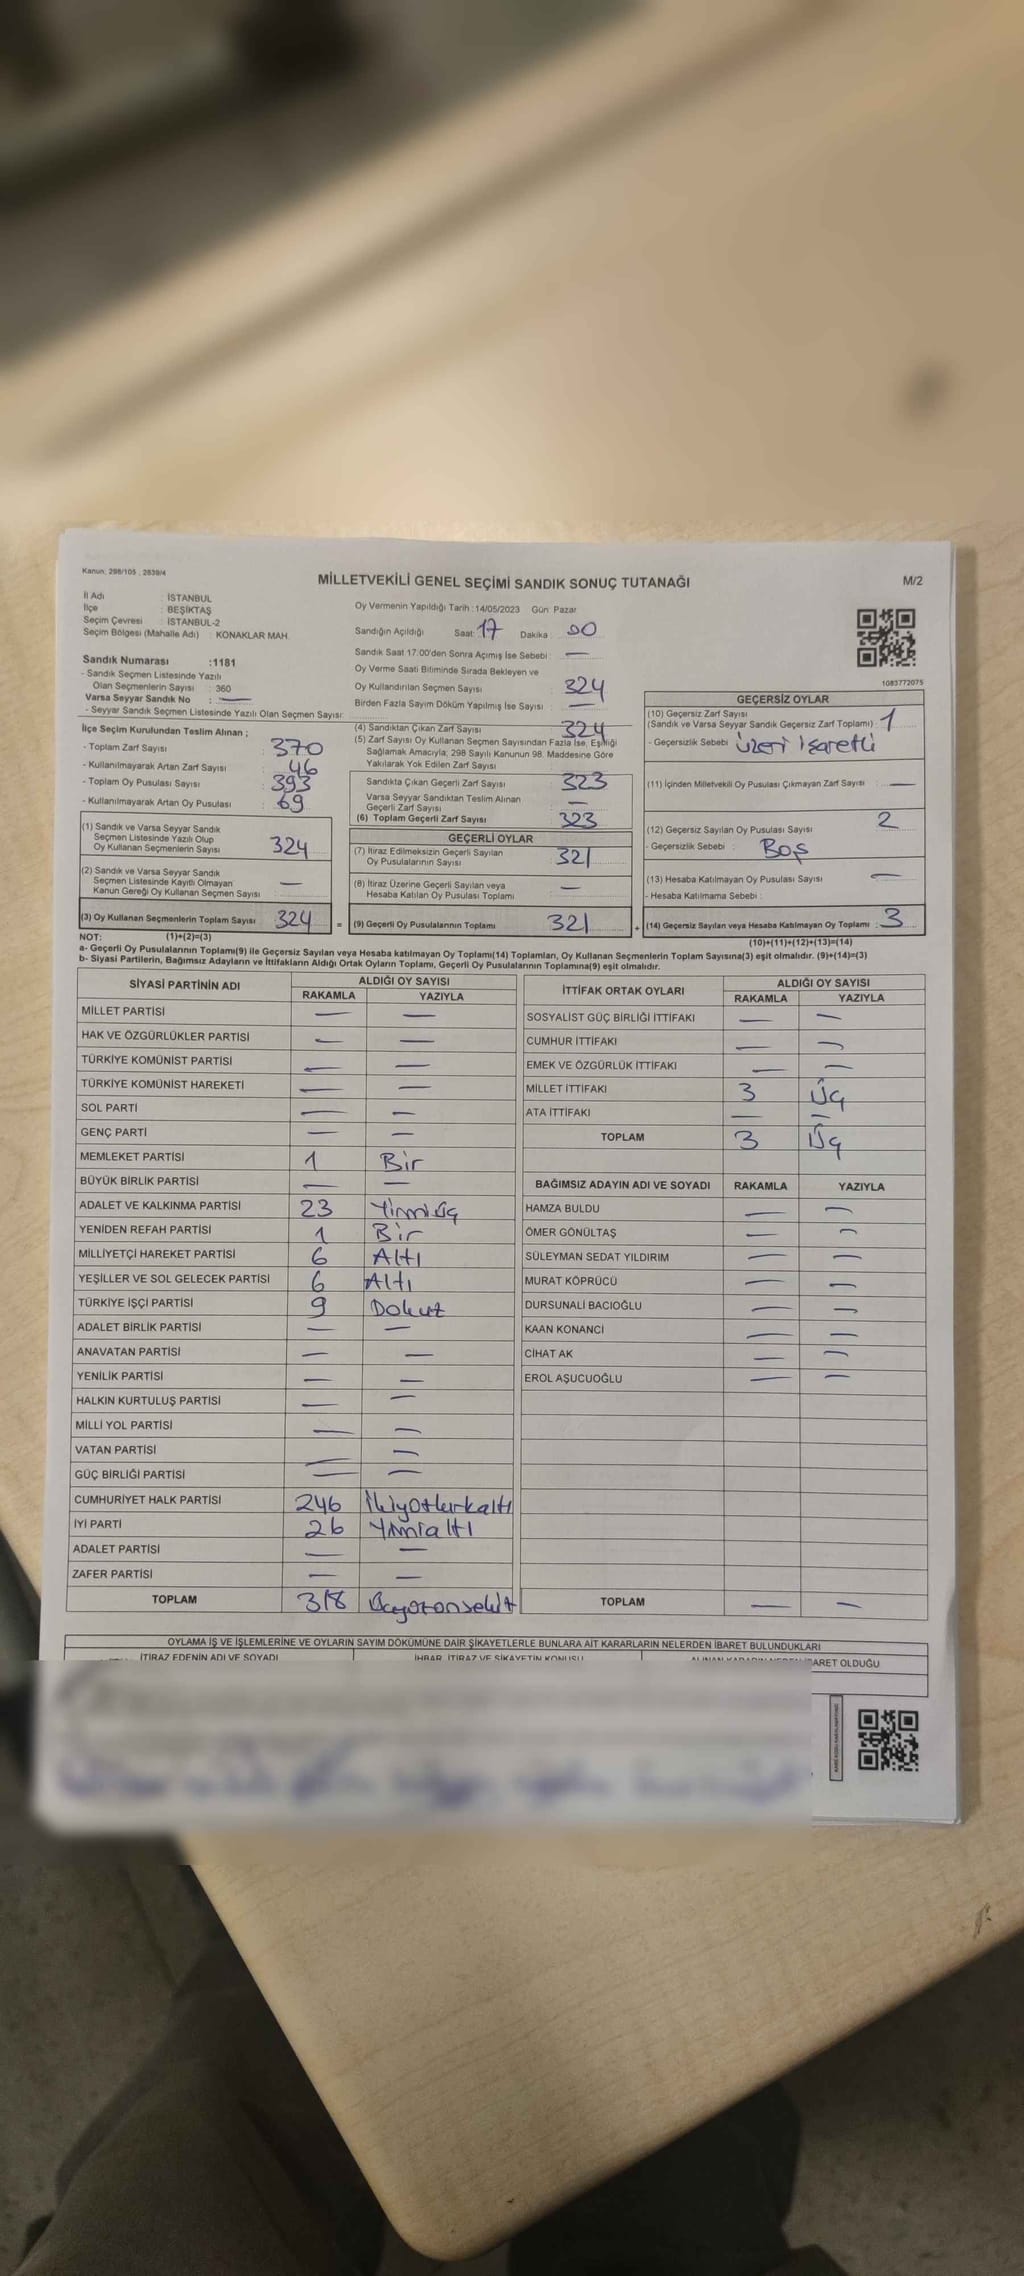 Kanun, 298/105 , 2839/4
MİLLETVEKİLİ GENEL SEÇİMİ SANDIK SONUÇ TUTANAĞI
M/2
İl Adı : İSTANBUL
İlçe : BEŞİKTAŞ
Seçim Çevresi : İSTANBUL-2
Seçim Bölgesi (Mahalle Adı) : KONAKLAR MAH.
Sandık Numarası :1181
- Sandık Seçmen Listesinde Yazılı
Olan Seçmenlerin Sayısı : 360
Varsa Seyyar Sandık No : —
- Seyyar Sandık Seçmen Listesinde Yazılı Olan Seçmen Sayısı:
İlçe Seçim Kurulundan Teslim Alınan ;
- Toplam Zarf Sayısı : 370
- Kullanılmayarak Artan Zarf Sayısı : 46
- Toplam Oy Pusulası Sayısı : 393
- Kullanılmayarak Artan Oy Pusulası : 69
(1) Sandık ve Varsa Seyyar Sandık
Seçmen Listesinde Yazılı Olup
Oy Kullanan Seçmenlerin Sayısı : 324
(2) Sandık ve Varsa Seyyar Sandık
Seçmen Listesinde Kayıtlı Olmayan
Kanun Gereği Oy Kullanan Seçmen Sayısı : —
(3) Oy Kullanan Seçmenlerin Toplam Sayısı : 324 =
Oy Vermenin Yapıldığı Tarih :14/05/2023 Gün: Pazar
Sandığın Açıldığı Saat: 17 Dakika : 00
Sandık Saat 17:00'den Sonra Açımış İse Sebebi : —
Oy Verme Saati Bitiminde Sırada Bekleyen ve
Oy Kullandırılan Seçmen Sayısı : 324
Birden Fazla Sayım Döküm Yapılmış İse Sayısı : —
(4) Sandıktan Çıkan Zarf Sayısı : 324
(5) Zarf Sayısı Oy Kullanan Seçmen Sayısından Fazla İse, Eşitliği
Sağlamak Amacıyla; 298 Sayılı Kanunun 98. Maddesine Göre
Yakılarak Yok Edilen Zarf Sayısı :
Sandıkta Çıkan Geçerli Zarf Sayısı : 323
Varsa Seyyar Sandıktan Teslim Alınan
Geçerli Zarf Sayısı : —
(6) Toplam Geçerli Zarf Sayısı : 323
GEÇERLİ OYLAR
(7) İtiraz Edilmeksizin Geçerli Sayılan
Oy Pusulalarının Sayısı : 321
(8) İtiraz Üzerine Geçerli Sayılan veya
Hesaba Katılan Oy Pusulası Toplamı : —
(9) Geçerli Oy Pusulalarının Toplamı : 321 +
1083772075
GEÇERSİZ OYLAR
(10) Geçersiz Zarf Sayısı
(Sandık ve Varsa Seyyar Sandık Geçersiz Zarf Toplamı) : 1
- Geçersizlik Sebebi : üzeri işaretli
(11) İçinden Milletvekili Oy Pusulası Çıkmayan Zarf Sayısı : —
(12) Geçersiz Sayılan Oy Pusulası Sayısı : 2
- Geçersizlik Sebebi : Boş
(13) Hesaba Katılmayan Oy Pusulası Sayısı : —
- Hesaba Katılmama Sebebi :
(14) Geçersiz Sayılan veya Hesaba Katılmayan Oy Toplamı : 3
NOT: (1)+(2)=(3)
(10)+(11)+(12)+(13)=(14)
a- Geçerli Oy Pusulalarının Toplamı(9) ile Geçersiz Sayılan veya Hesaba katılmayan Oy Toplamı(14) Toplamları, Oy Kullanan Seçmenlerin Toplam Sayısına(3) eşit olmalıdır. (9)+(14)=(3)
b- Siyasi Partilerin, Bağımsız Adayların ve İttifakların Aldığı Ortak Oyların Toplamı, Geçerli Oy Pusulalarının Toplamına(9) eşit olmalıdır.
SİYASİ PARTİNİN ADI ALDIĞI OY SAYISI
RAKAMLA YAZIYLA
MİLLET PARTİSİ — —
HAK VE ÖZGÜRLÜKLER PARTİSİ — —
TÜRKİYE KOMÜNİST PARTİSİ — —
TÜRKİYE KOMÜNİST HAREKETİ — —
SOL PARTİ — —
GENÇ PARTİ — —
MEMLEKET PARTİSİ 1 Bir
BÜYÜK BİRLİK PARTİSİ — —
ADALET VE KALKINMA PARTİSİ 23 Yirmiüç
YENİDEN REFAH PARTİSİ 1 Bir
MİLLİYETÇİ HAREKET PARTİSİ 6 Altı
YEŞİLLER VE SOL GELECEK PARTİSİ 6 Altı
TÜRKİYE İŞÇİ PARTİSİ 9 Dokuz
ADALET BİRLİK PARTİSİ — —
ANAVATAN PARTİSİ — —
YENİLİK PARTİSİ — —
HALKIN KURTULUŞ PARTİSİ — —
MİLLİ YOL PARTİSİ — —
VATAN PARTİSİ — —
GÜÇ BİRLİĞİ PARTİSİ — —
CUMHURİYET HALK PARTİSİ 246 İkiyüzkırkaltı
İYİ PARTİ 26 Yirmialtı
ADALET PARTİSİ — —
ZAFER PARTİSİ — —
TOPLAM 318 Üçyüzonsekiz
İTTİFAK ORTAK OYLARI ALDIĞI OY SAYISI
RAKAMLA YAZIYLA
SOSYALİST GÜÇ BİRLİĞİ İTTİFAKI — —
CUMHUR İTTİFAKI — —
EMEK VE ÖZGÜRLÜK İTTİFAKI — —
MİLLET İTTİFAKI 3 Üç
ATA İTTİFAKI — —
TOPLAM 3 Üç
BAĞIMSIZ ADAYIN ADI VE SOYADI RAKAMLA YAZIYLA
HAMZA BULDU — —
ÖMER GÖNÜLTAŞ — —
SÜLEYMAN SEDAT YILDIRIM — —
MURAT KÖPRÜCÜ — —
DURSUNALİ BACIOĞLU — —
KAAN KONANCİ — —
CİHAT AK — —
EROL AŞUCUOĞLU — —
TOPLAM — —
OYLAMA İŞ VE İŞLEMLERİNE VE OYLARIN SAYIM DÖKÜMÜNE DAİR ŞİKAYETLERLE BUNLARA AİT KARARLARIN NELERDEN İBARET BULUNDUKLARI
İTİRAZ EDENİN ADI VE SOYADI İHBAR, İTİRAZ VE ŞİKAYETİN KONUSU İBARET OLDUĞU